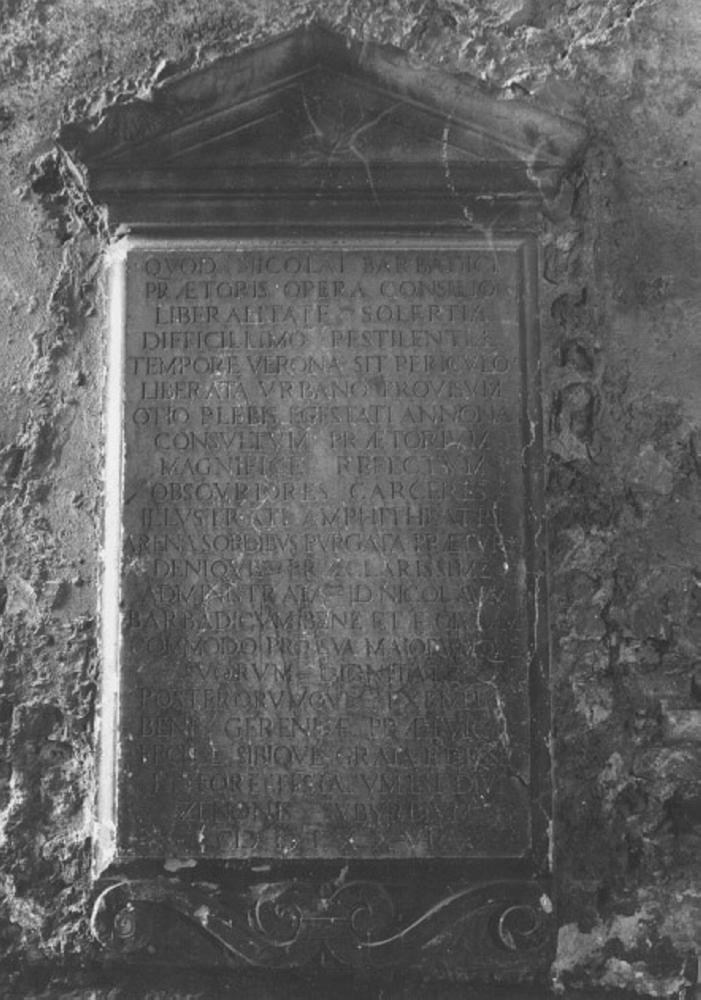 QVOD NICOLAI BARBADICI
PRÆTORIS OPERA CONSILIO
LIBERALITATE SOLERTIA
DIFFICILLIMO PESTILENTIÆ
TEMPORE VERONA SIT PERICVLO
LIBERATA VRBANO PROVISVM
OTIO PLEBIS EGESTATI ANNONA
CONSVLTVM PRÆTORIVM
MAGNIFICE REFECTVM
OBSCVRIORES CARCERES
ILLVSTRATI AMPHITHEATRI
ARENA SORDIBVS PVRGATA PRÆTVRA
DENIQVE PRÆCLARISSIME
ID NICOLAVM
BARBADICVM BENE ET E
COMMODO PRO SVA MAIORVMQ
SVORVM DIGNITATE
POSTERORVMQVE EXEMPLO
BENE GERENDÆ PRÆTVRÆ
FECISSE SIBIQVE GRATVM
ET FORE TESTATVM EST DIVI
ZENONIS SVBVRBIVM